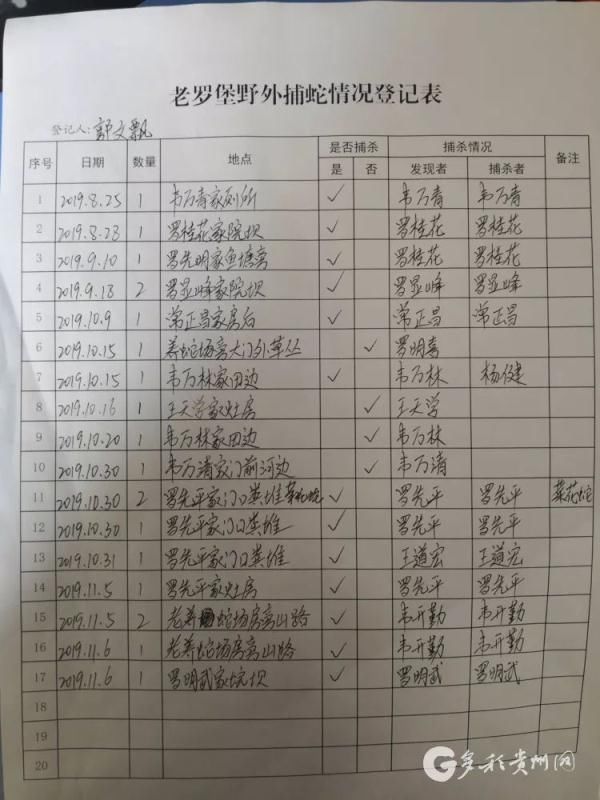 老罗堡野外捕蛇情况登记表
登记人: 郭文飘
序号 日期 数量 地点 是否捕杀 捕杀情况 备注
是 否 发现者 捕杀者
1 2019.8.25 1 韦万青家厕所 ✓ 韦万青 韦万青
2 2019.8.28 1 罗桂花家院坝 ✓ 罗桂花 罗桂花
3 2019.9.10 1 罗先明家鱼塘旁 ✓ 罗桂花 罗桂花
4 2019.9.18 2 罗显峰家院坝 ✓ 罗显峰 罗显峰
5 2019.10.9 1 常正昌家房后 ✓ 常正昌 常正昌
6 2019.10.15 1 养蛇场旁大门外草丛 ✓ 罗明
7 2019.10.15 1 韦万林家田边 ✓ 韦万林 杨健
8 2019.10.16 1 王天学家灶房 ✓ 王天学
9 2019.10.20 1 韦万林家田边 ✓ 韦万林
10 2019.10.30 1 韦万清家门前河边 ✓ 韦万清
11 2019.10.30 2 罗先平家门口粪堆菜花蛇 ✓ 罗先平 罗先平 菜花蛇
12 2019.10.30 1 罗先平家门口粪堆 ✓ 罗先平 罗先平
13 2019.10.31 1 罗先平家门口粪堆 ✓ 王道宏 王道宏
14 2019.11.5 1 罗先平家灶房 ✓ 罗先平 罗先平
15 2019.11.5 2 老养蛇场房旁山路 ✓ 韦开勤 韦开勤
16 2019.11.6 1 老养蛇场房旁山路 ✓ 韦开勤 韦开勤
17 2019.11.6 1 罗明武家院坝 ✓ 罗明武 罗明武
18
19
20
多彩贵州网